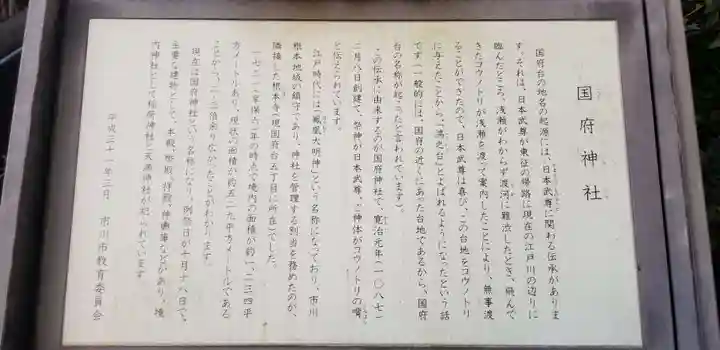 国府神社
国府台の地名の起源には、日本武尊に関わる伝承がありま
す。それは、日本武尊が東征の帰路に現在の江戸川の辺りに
臨んだところ、浅瀬がわからず渡河に難渋したとき、飛んで
きたコウノトリが浅瀬を渡って案内したことにより、無事渡
ることができたので、日本武尊は喜び、この台地をコウノトリ
に与えたことから、「鴻之台」とよばれるようになったという話
です(一般的には、国府の近くにあった台地であるから、国府
台の名称が起こったと言われています)。
この伝承に由来するのが国府神社で、寛治元年(一〇八七)
二月八日創建で、祭神が日本武尊、ご神体がコウノトリの嘴
と伝えられています。
江戸時代には「鳳凰大明神」という名称になっており、市川
根本地域の鎮守であり、神社を管理する別当を務めたのが、
隣接した根本寺(現国府台五丁目に所在)でした。
一七二一(享保六)年の時点で境内の面積が約一、二三四平
方メートルあり、現状の面積が約五二九平方メートルである
ことから、二・三倍余り広かったことがわかります。
現在は国府神社という名称になり、例祭日が十月十八日で、
主要な建物として、本殿、幣殿、拝殿、神輿庫などがあり、境
内神社として稲荷神社と天満神社が祀られています
平成三十一年三月 市川市教育委員会